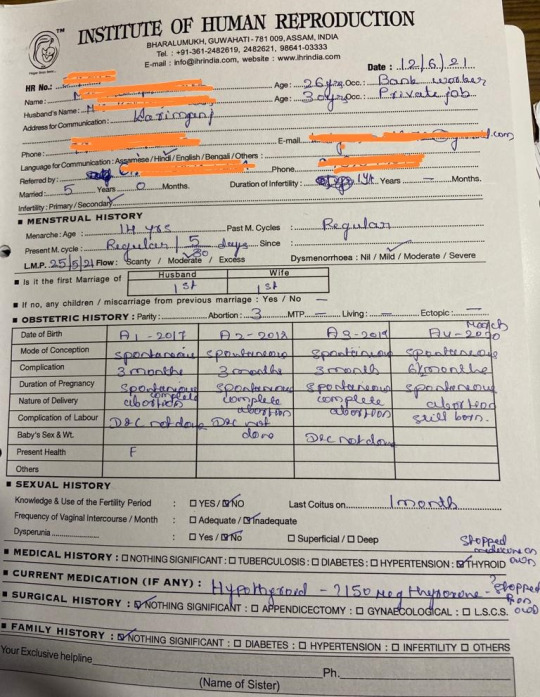 INSTITUTE OF HUMAN REPRODUCTION
BHARALUMUKH, GUWAHATI - 781 009, ASSAM, INDIA
Tel. : +91-361-2482619, 2482621, 98641-03333
E-mail : info@ihrindia.com, website : www.ihrindia.com
TM
Date : 12/6/21
HR No.:
Name : Age : 26 yrs Occ.: Bank worker
Husband's Name : Age : 30 yrs Occ.: Private job
Address for Communication : Karimganj
Phone : E-mail .com
Language for Communication : Assamese / Hindi / English / Bengali / Others :
Referred by : Phone
Married : 5 Years 0 Months. Duration of Infertility : 1 yr Years — Months.
Infertility : Primary / Secondary
■ MENSTRUAL HISTORY
Menarche : Age : 14 yrs Past M. Cycles : Regular
Present M. cycle : Regular / 5 days Since :
30
L.M.P. 25/5/21 Flow : Scanty / Moderate / Excess Dysmenorrhoea : Nil / Mild / Moderate / Severe
■ Is it the first Marriage of Husband Wife
1st 1st
■ If no, any children / miscarriage from previous marriage : Yes / No —
■ OBSTETRIC HISTORY : Parity : Abortion : 3 MTP — Living : — Ectopic : —
Date of Birth A1 - 2017 A2 - 2018 A3 - 2019 A4 - 2020 March
Mode of Conception spontaneous spontaneous spontaneous spontaneous
Complication 3 months 3 months 3 month 6 months
Duration of Pregnancy spontaneous spontaneous spontaneous spontaneous
Nature of Delivery complete abortion complete abortion complete abortion abortion
Complication of Labour D&C not done D&C not done still born.
Baby's Sex & Wt. D&C not done
Present Health F
Others
■ SEXUAL HISTORY
Knowledge & Use of the Fertility Period : □ YES / ☑ NO Last Coitus on 1 month
Frequency of Vaginal Intercourse / Month : □ Adequate / ☑ Inadequate
Dysperunia : □ Yes / ☑ No □ Superficial / □ Deep
stopped medicine on own
■ MEDICAL HISTORY : □ NOTHING SIGNIFICANT : □ TUBERCULOSIS : □ DIABETES : □ HYPERTENSION : ☑ THYROID
■ CURRENT MEDICATION (IF ANY) : Hypothyroid - 150 mcg thyroxone - stopped on own
■ SURGICAL HISTORY : ☑ NOTHING SIGNIFICANT : □ APPENDICECTOMY : □ GYNAECOLOGICAL : □ L.S.C.S.
■ FAMILY HISTORY : ☑ NOTHING SIGNIFICANT : □ DIABETES : □ HYPERTENSION : □ INFERTILITY □ OTHERS
Your Exclusive helpline
(Name of Sister) Ph.